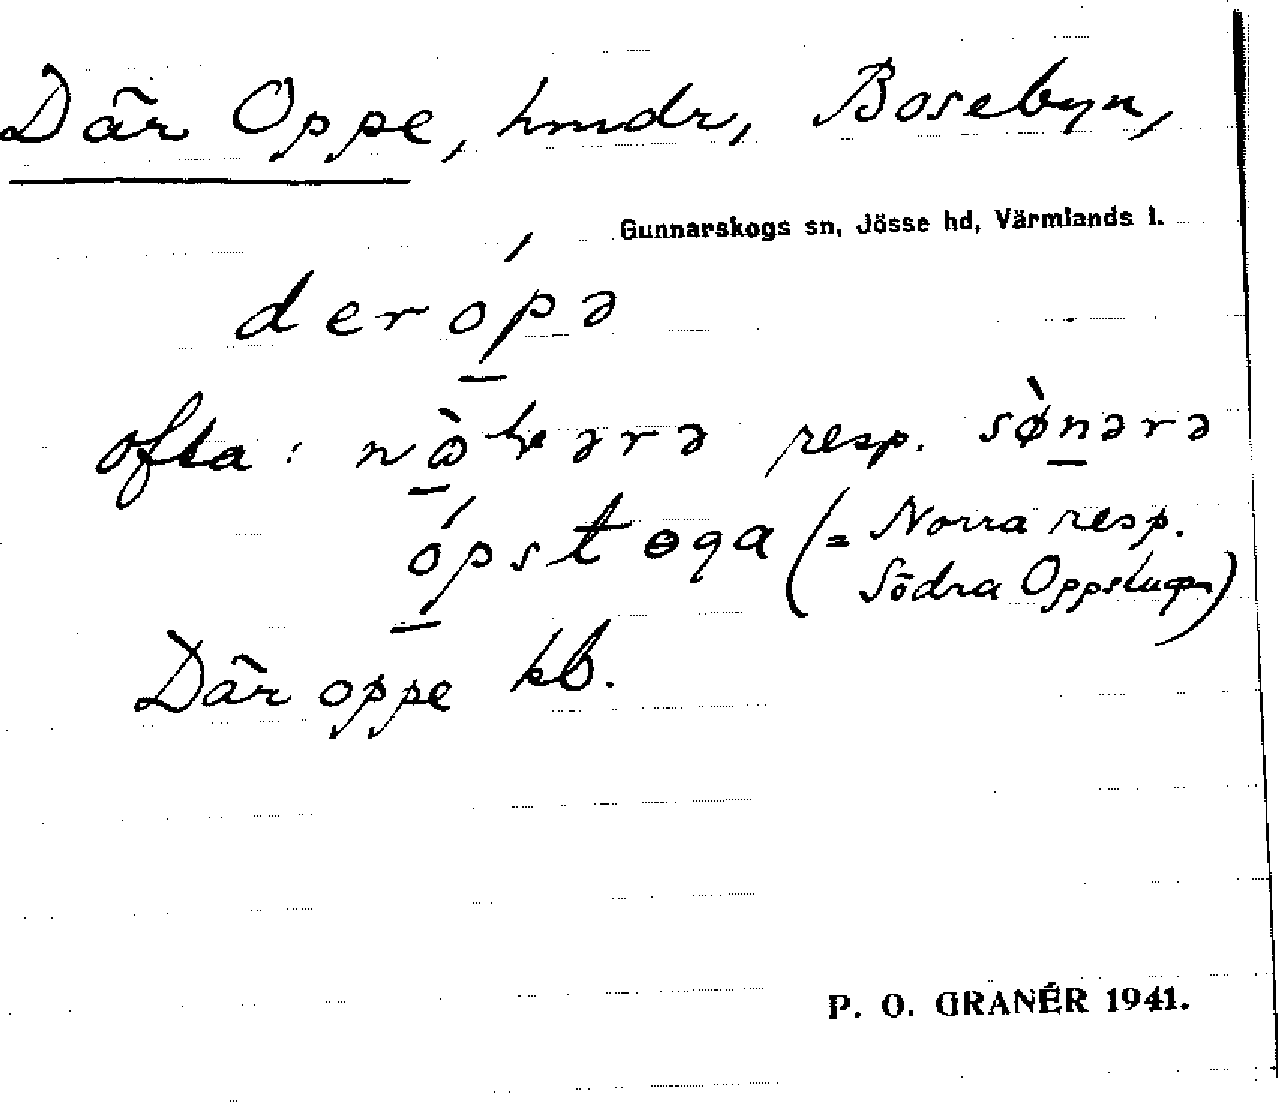 Där Oppe, hmdr, Bosebyn,
Gunnarskogs sn, Jösse hd, Värmlands l.
derópə
ofta: resp. sø̀nərə
ópstɵga (= Norra resp.
Södra Oppstugan)
Där oppe kb.
P. O. GRANÉR 1941.